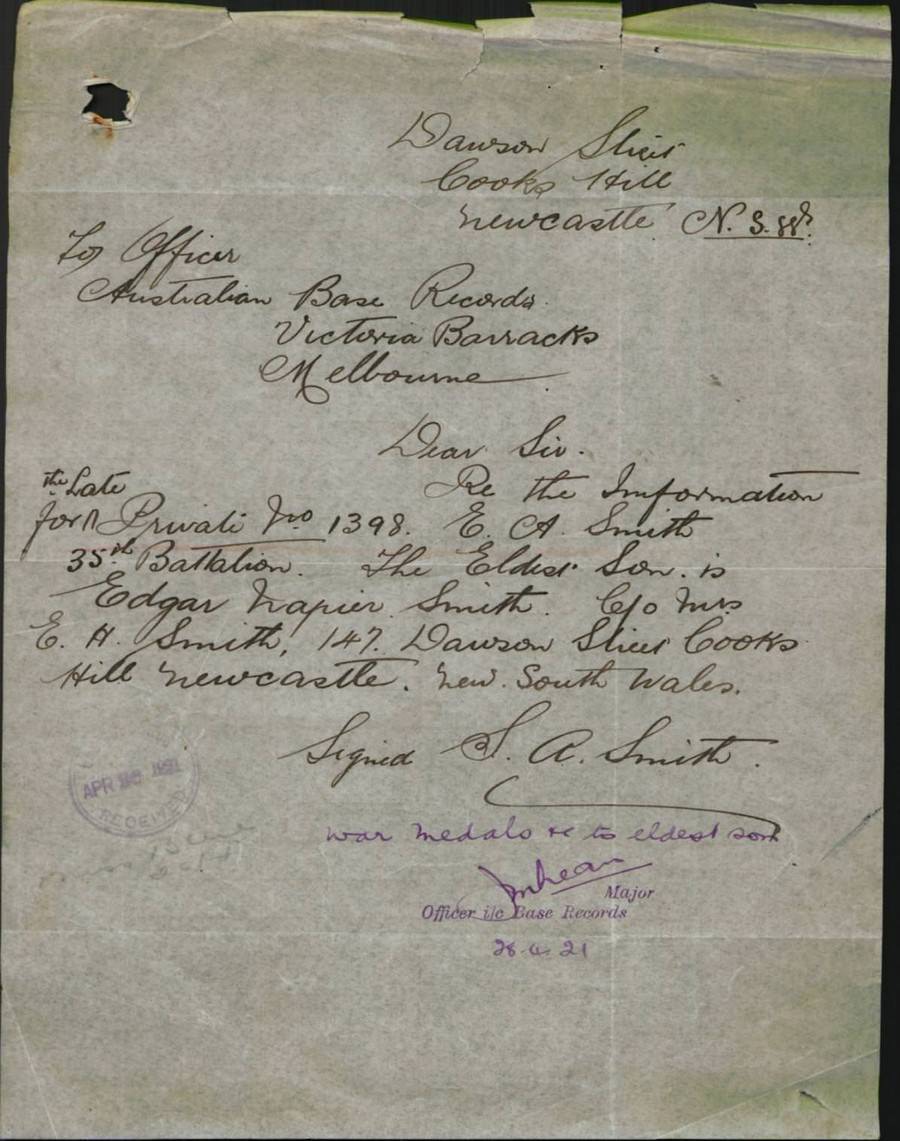 Dawson Street
Cooks Hill
Newcastle N. S. W.
To Officer
Australian Base Records.
Victoria Barracks
Melbourne
Dear Sir.
the Late
Re the Information
for Private No 1398. E. A. Smith
35th Battalion. The Eldest Son. is
Edgar Napier Smith. C/o Mrs
E. H. Smith, 147. Dawson Street Cooks
Hill Newcastle. New. South Wales.
Signed S. A. Smith.
APR 1921
RECEIVED
war medals &c to eldest son
Major
Officer i/c Base Records
28.4.21